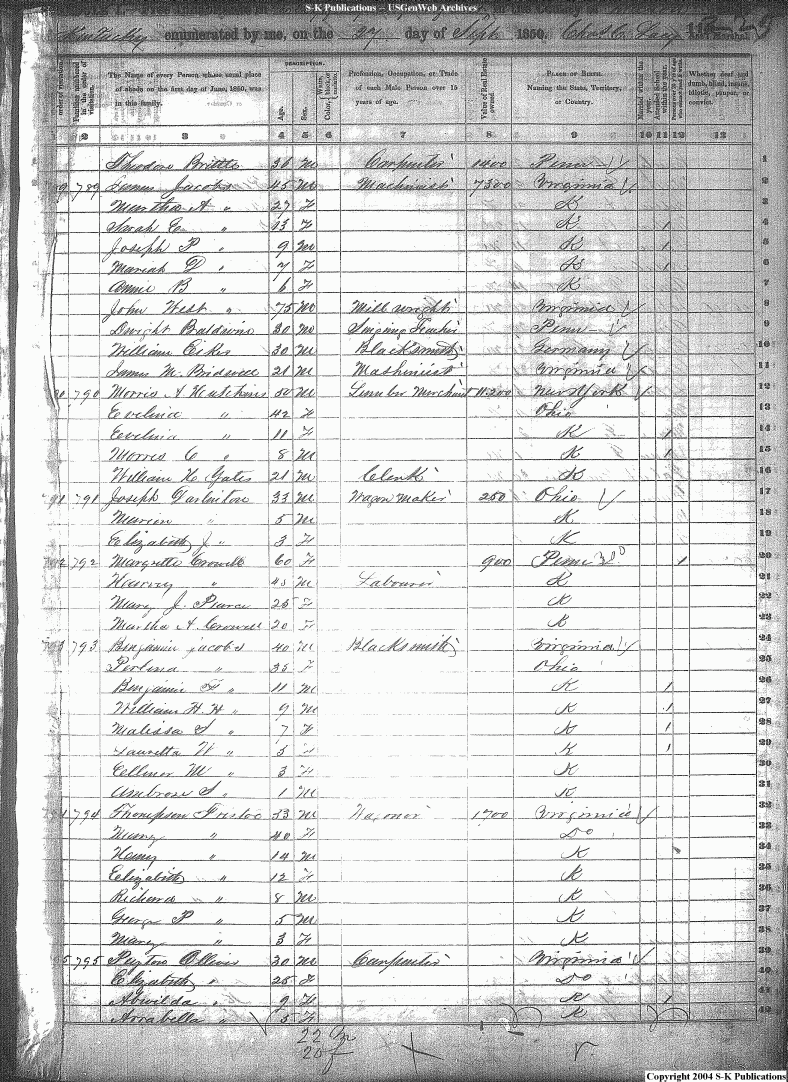 S-K Publications -- USGenWeb Archives
Kentucky enumerated by me, on the 27 day of Sept 1850.
DESCRIPTION.
The Name of every Person whose usual place of abode on the first day of June, 1850, was in this family. Age. Sex. Profession, Occupation, or Trade of each Male Person over 15 years of age. Value of Real Estate owned. PLACE OF BIRTH. Naming the State, Territory, or Country. Married within the year. Whether deaf and dumb, blind, insane, idiotic, pauper, or convict.
2 3 4 5 6 7 8 9 10 11 12 13
Theodore Brittle 36 M Carpenter 1400 Penn 1
789 James Jacobs 45 M Machinist 7300 Virginia 2
Martha A " 27 F K 3
Sarah C " 13 F K 1 4
Joseph P " 9 M K 1 5
Mariah D " 7 F K 1 6
Annie B " 6 F K 7
John West " 75 M Mill wright Virginia 8
Dwight Baldwin 30 M Singing Penn 9
William 30 M Blacksmith Germany 10
James M. Bridwell 21 M Mashinist Virginia 11
790 Morris A Hutchins 50 M Lumber Merchant 11.200 New York 12
Evelina " 42 F Ohio 13
Evelina " 11 F K 1 14
Morris C " 8 M K 1 15
William H Gates 21 M Clerk K 16
791 791 Joseph Darlinton 33 M Wagon Maker 250 Ohio 17
Marion " 5 M K 18
Elizabeth J " 3 F K 19
792 792 Margrette Crowell 60 F 900 Penn 1 20
Harvey " 45 M Labourer K 21
Mary J. Pearce 25 F K 22
Martha A. Crowell 20 F K 23
793 793 Benjamin Jacobs 40 M Blacksmith Virginia 24
Perlina " 35 F Ohio 25
Benjamin F " 11 M K 1 26
William H. H " 9 M K 1 27
Malissa S " 7 F K 1 28
Lauretta W " 5 F K 1 29
Ellinor M " 3 F K 30
Ambrose S " 1 M K 31
794 Thompson Fristoe 53 M Wagoner 1700 Virginia 32
Mary " 40 F Do 33
Henry " 14 M K 34
Elizabeth " 12 F K 35
Richard " 8 M K 36
George P " 5 M K 37
Mary " 3 F K 38
795 Payton Ollivis 30 M Carpenter Virginia 39
Elizabeth " 25 F Do 40
Abwilda " 9 F K 1 41
Arrabella " 5 F K 42
22 m
20 f
Copyright 2004 S-K Publications